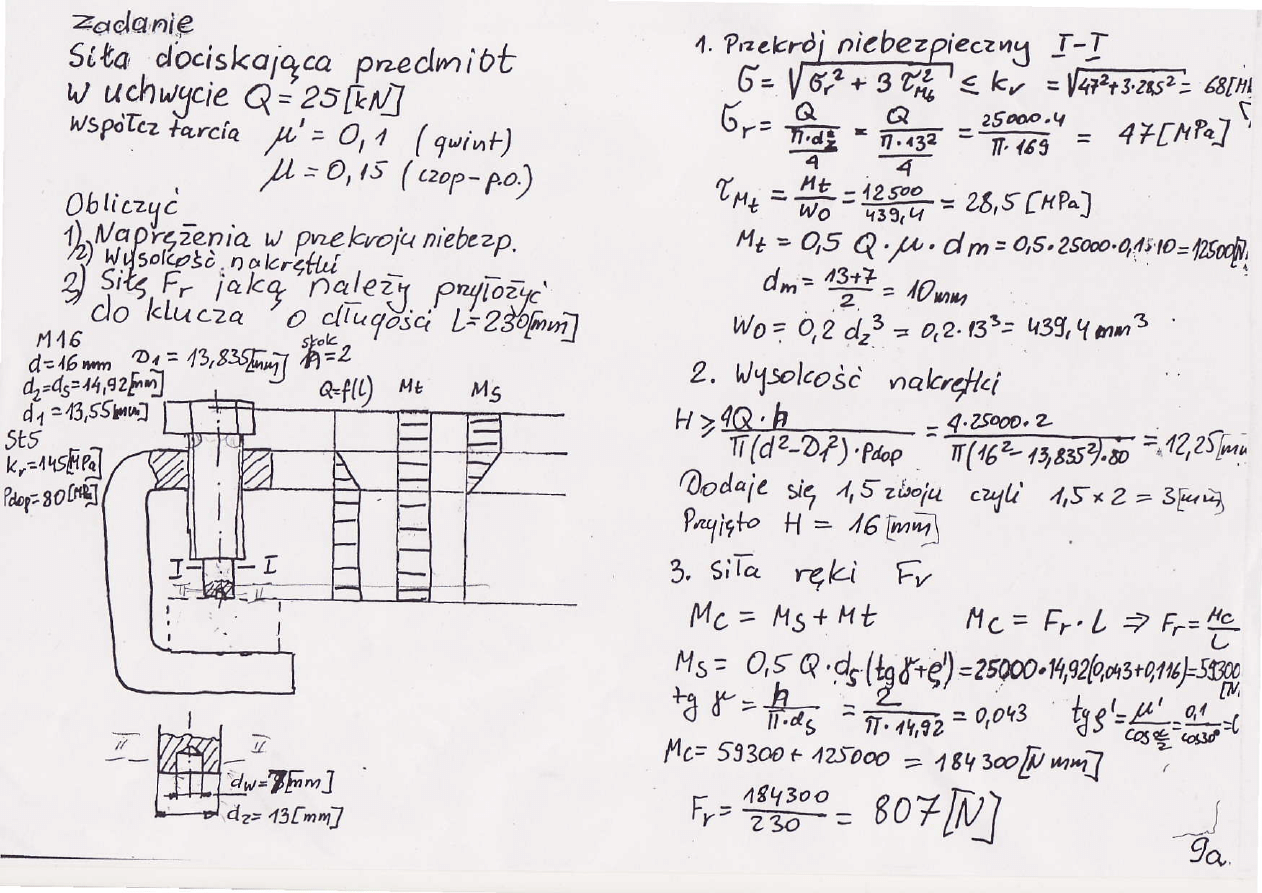 Zadanie
Siła dociskająca przedmiot
w uchwycie Q = 25 [kN]
współcz tarcia μ' = 0,1 (gwint)
μ = 0,15 (czop-p.o.)
Obliczyć
1) Naprężenia w przekroju niebezp.
2) Wysokość nakrętki
3) Siłę Fr jaką należy przyłożyć
do klucza o długości L = 230 [mm]
M16
d = 16 mm D1 = 13,835 [mm] skok h = 2
d2 = ds = 14,92 [mm]
d1 = 13,55 [mm]
St5
kr = 145 [MPa]
Pdop = 80 [MPa]
Q=f(l) Mt Ms
I I
II II
dw = 7 [mm]
dz = 13 [mm]
1. Przekrój niebezpieczny I-I
σ = √(σr² + 3 τMt²) ≤ kr = √(47²+3·28,5²) = 68 [M
σr = Q / (π·dz² / 4) = Q / (π·13² / 4) = 25000·4 / (π·169) = 47 [MPa]
τMt = Mt / Wo = 12500 / 439,4 = 28,5 [MPa]
Mt = 0,5 Q·μ·dm = 0,5·25000·0,15·10 = 12500 [N
dm = (13+7) / 2 = 10 mm
Wo = 0,2 dz³ = 0,2·13³ = 439,4 mm³
2. Wysokość nakrętki
H ≥ 4Q·h / (π(d²-D1²)·Pdop) = 4·25000·2 / (π(16²-13,835²)·80) = 12,25 [mm
Dodaje się 1,5 zwoju czyli 1,5 × 2 = 3 [mm]
Przyjęto H = 16 [mm]
3. Siła ręki Fr
Mc = Ms + Mt Mc = Fr·L ⇒ Fr = Mc / L
Ms = 0,5 Q·ds (tg γ + ρ') = 25000·14,92(0,043+0,116) = 59300 [N
tg γ = h / (π·ds) = 2 / (π·14,92) = 0,043 tg ρ' = μ' / cos α/2 = 0,1 / cos30° =
Mc = 59300 + 125000 = 184300 [N mm]
Fr = 184300 / 230 = 807 [N]
9a.